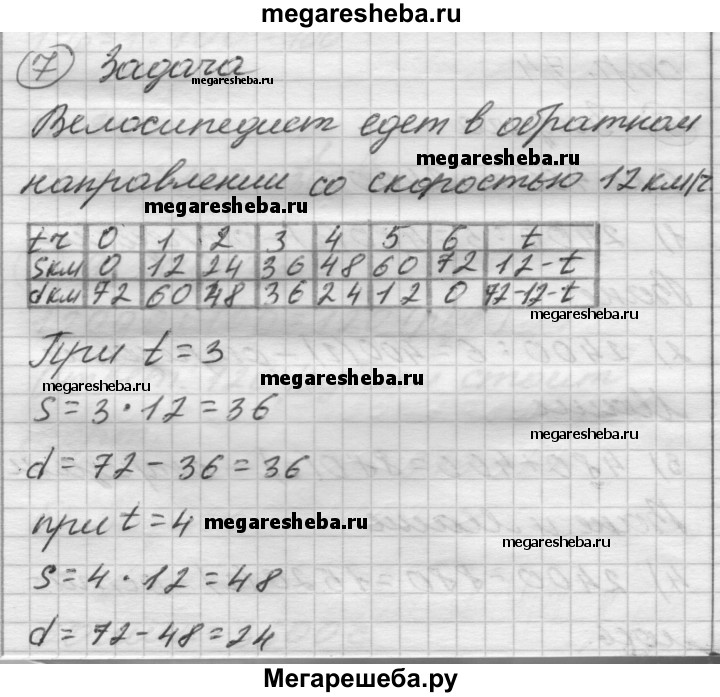 megaresheba.ru
7 Задача
megaresheba.ru
Велосипедист едет в обратном
megaresheba.ru
направлении со скоростью 12 км/ч.
megaresheba.ru
t ч 0 1 2 3 4 5 6 t
s км 0 12 24 36 48 60 72 12·t
d км 72 60 48 36 24 12 0 72-12·t
megaresheba.ru
При t = 3
megaresheba.ru
megaresheba.ru
s = 3 · 12 = 36
megaresheba.ru
d = 72 - 36 = 36
при t = 4
megaresheba.ru
megaresheba.ru
s = 4 · 12 = 48
d = 72 - 48 = 24
Мегарешеба.ру